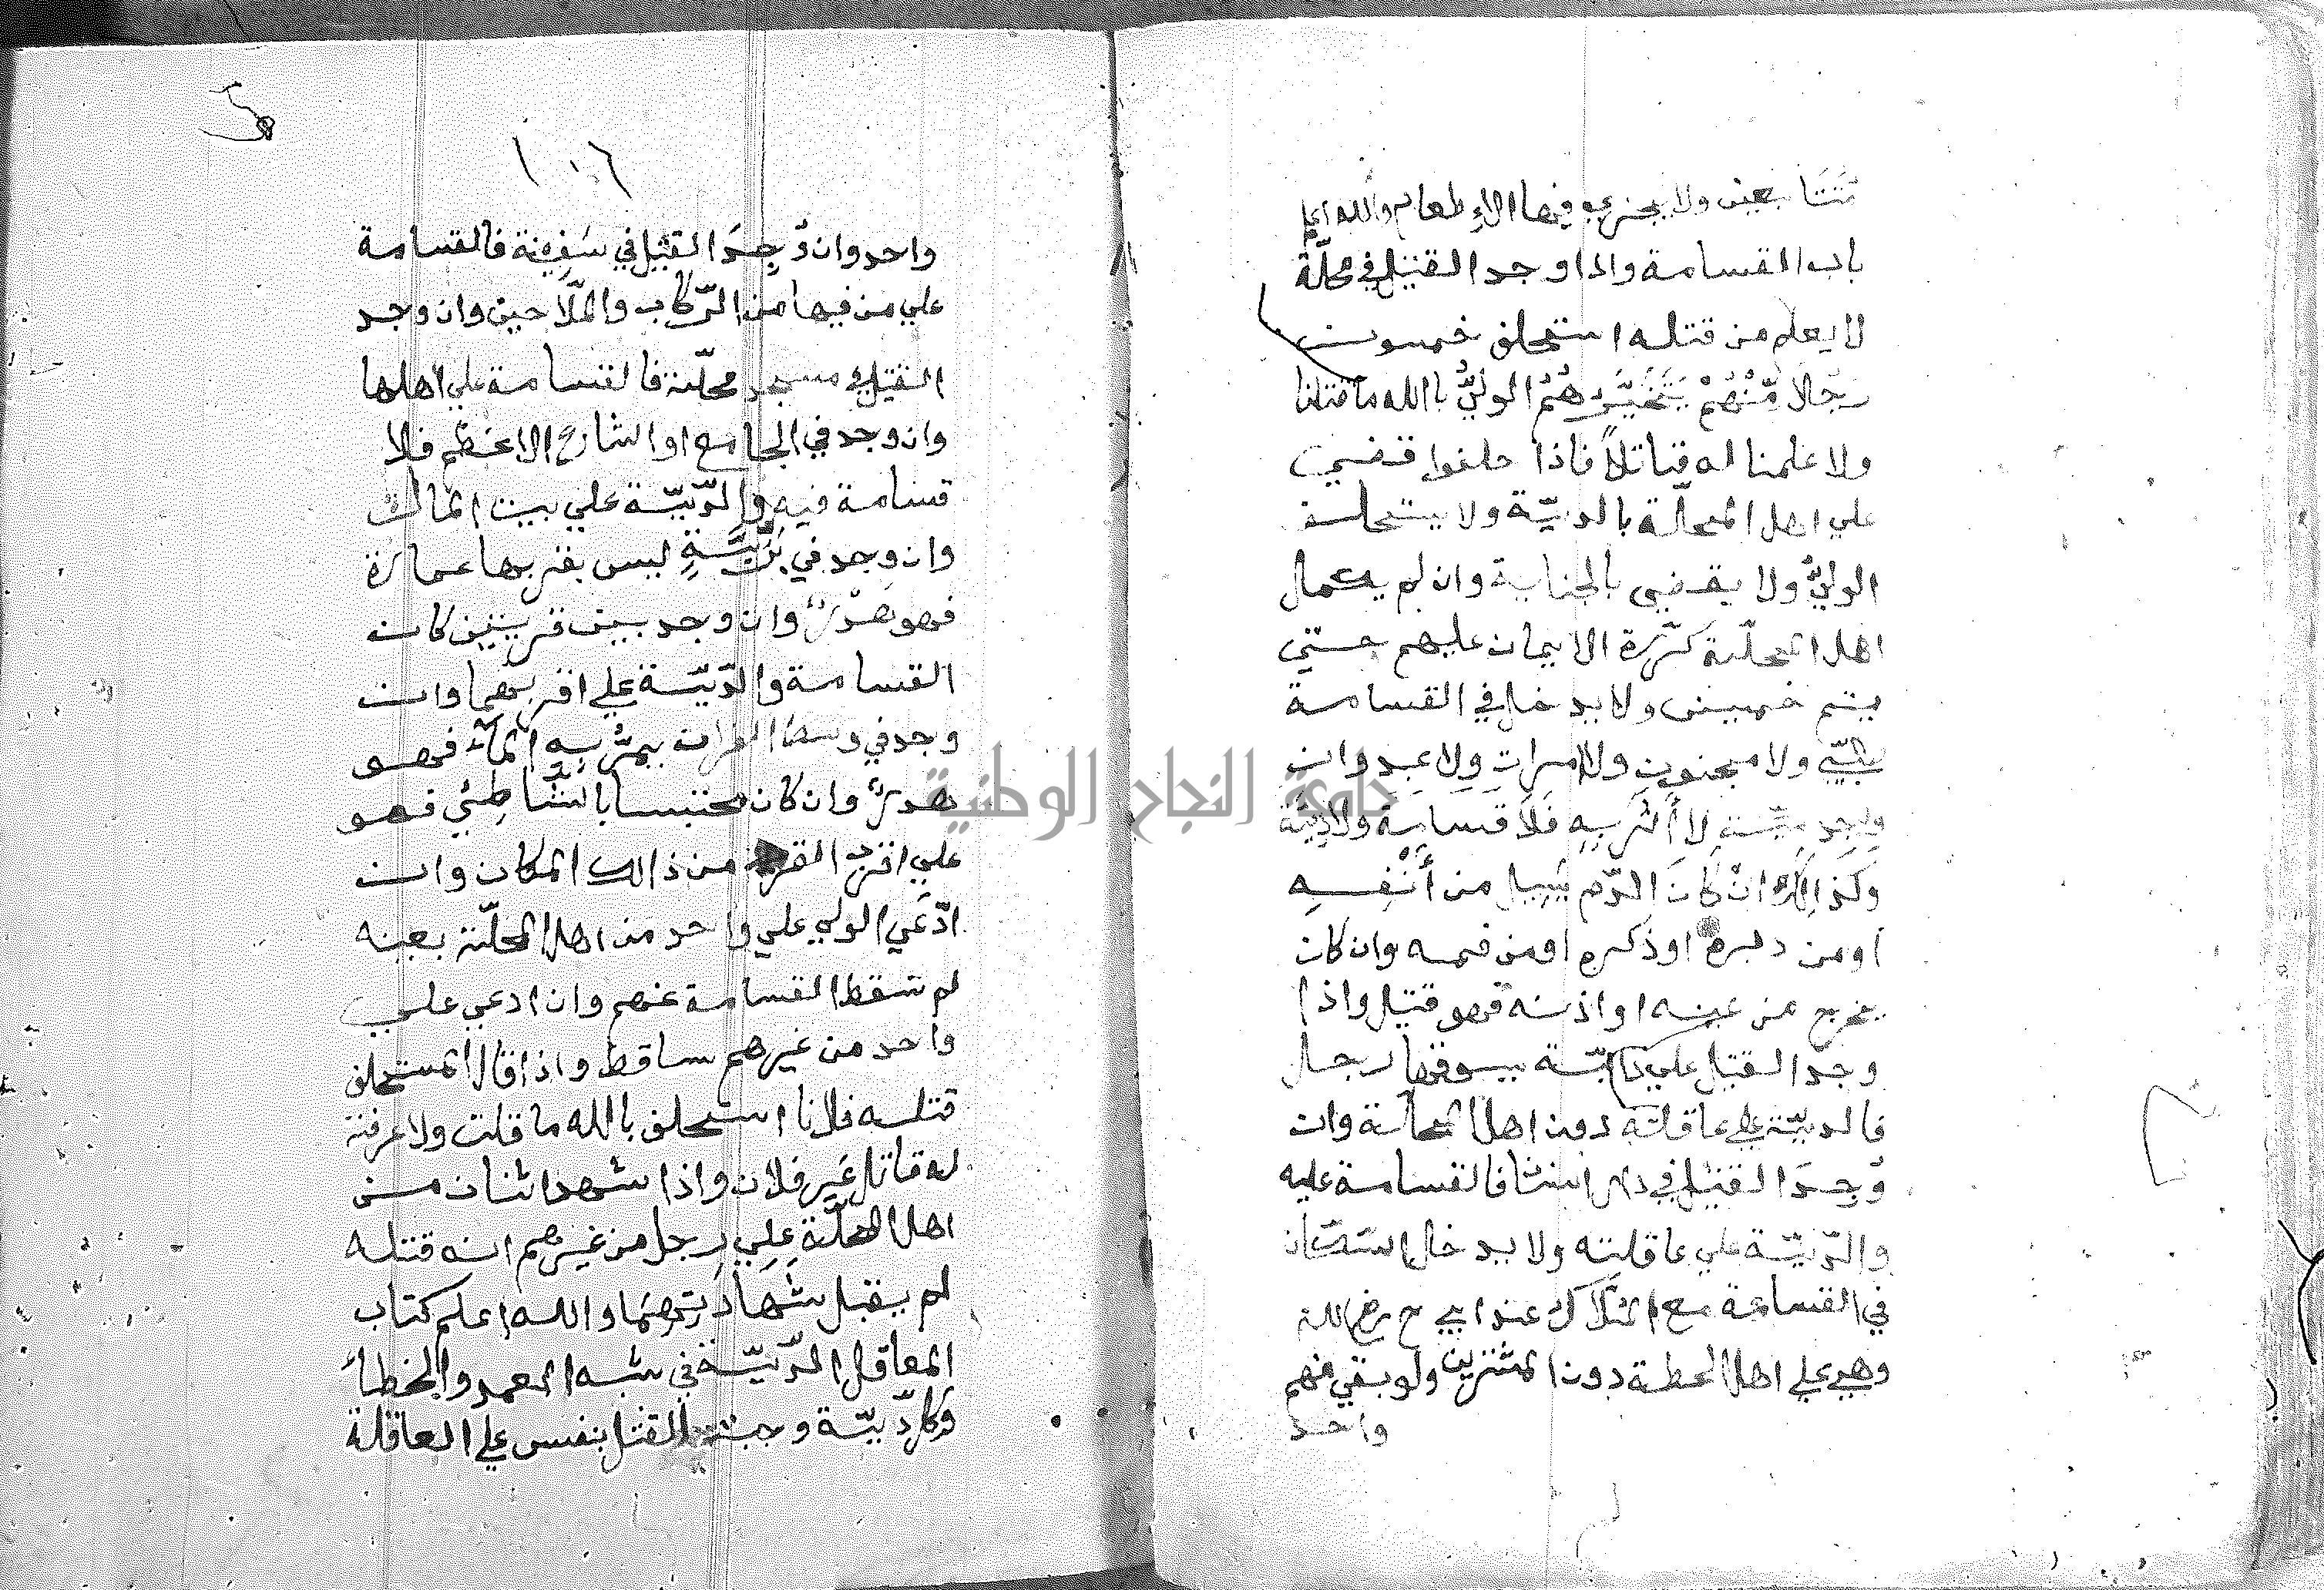 متتابعين ولا يجزي فيها الإطعام والله اعلم
باب القسامة واذا وجد القتيل في محلّة
لا يعلم من قتله استحلف خمسون
رجلا مّنْهُمْ يَتَخَيَّرُهُمُ الوليُّ باالله ما قتلنا
ولا علمنا له قاتلاً فاذا حلفوا قضي
علي اهل المحلّة بالديّة ولا يستحلف
الوليُّ ولا يقضي بالجناية وان لم يكمل
اهل المحلّة كرّرة الايمان عليهم حتّي
يتم خمسين ولا يدخل في القسامة
صبيّ ولا مجنون ولا امرات ولا عبد وان
وجد ميّت لا أثر به فلا قسامة ولا ديّة
وكذالك ان كان الدّم يسيل من أنْفِهِ
او من دبره او ذكره او من فمه وان كان
يخرج من عينه او اذنه فهو قتيل واذا
وجد القتيل علي دابّة يسوقها رجل
فالديّة علي عاقلته دون اهل المحلّة وان
وُجِدَ القتيل في دار انسان فالقسامة عليه
والدّيّة علي عاقلته ولا يدخل السّكّان
في القسامة مع الملّاك عند ابي ح رضي الله
وهي علي اهل الخطة دون المشترين ولو بقي منهم
واحد
١٠٦
واحد وان وُجِدَ القتيل في سَفِينة فالقسامة
علي من فيها من الرّكاب والملّاحين وان وجد
القتيل في مسجد محلّة فالقسامة علي اهلها
وان وجد في الجامع او الشارع الاعظم فلا
قسامة فيه والدّيّة علي بيت المال
وان وجد في برّيَّةٍ ليس بقربها عمارة
فهو هَدْرٌ وان وجد بين قريتين كان
القسامة والدّيّة علي اقربهما وان
وجد في وسط الفرات يمرُّ به المآء فهو
هدرٌ وان كان محتبسا بالشّاطئي فهو
علي اقرب القري من ذالك المكان وان
ادّعَي الولي علي واحد من اهل المحلّة بعينه
لم تسقط القسامة عنهم وان ادعي علي
واحد من غيرهم ساقط واذا قال المستحلف
قتله فلانا استحلف باالله ما قلت ولا عرفت
له قاتل غَير فلان واذا شهد اثنان من
اهل المحلّة علي رجل من غيرهم انه قتله
لم يقبل شَهادَتهمَا والله اعلم كتاب
المعاقل الدّيّة في شبه العمد والخطأ
وكل ديّة وجبت القتل بنفس علي العاقلة